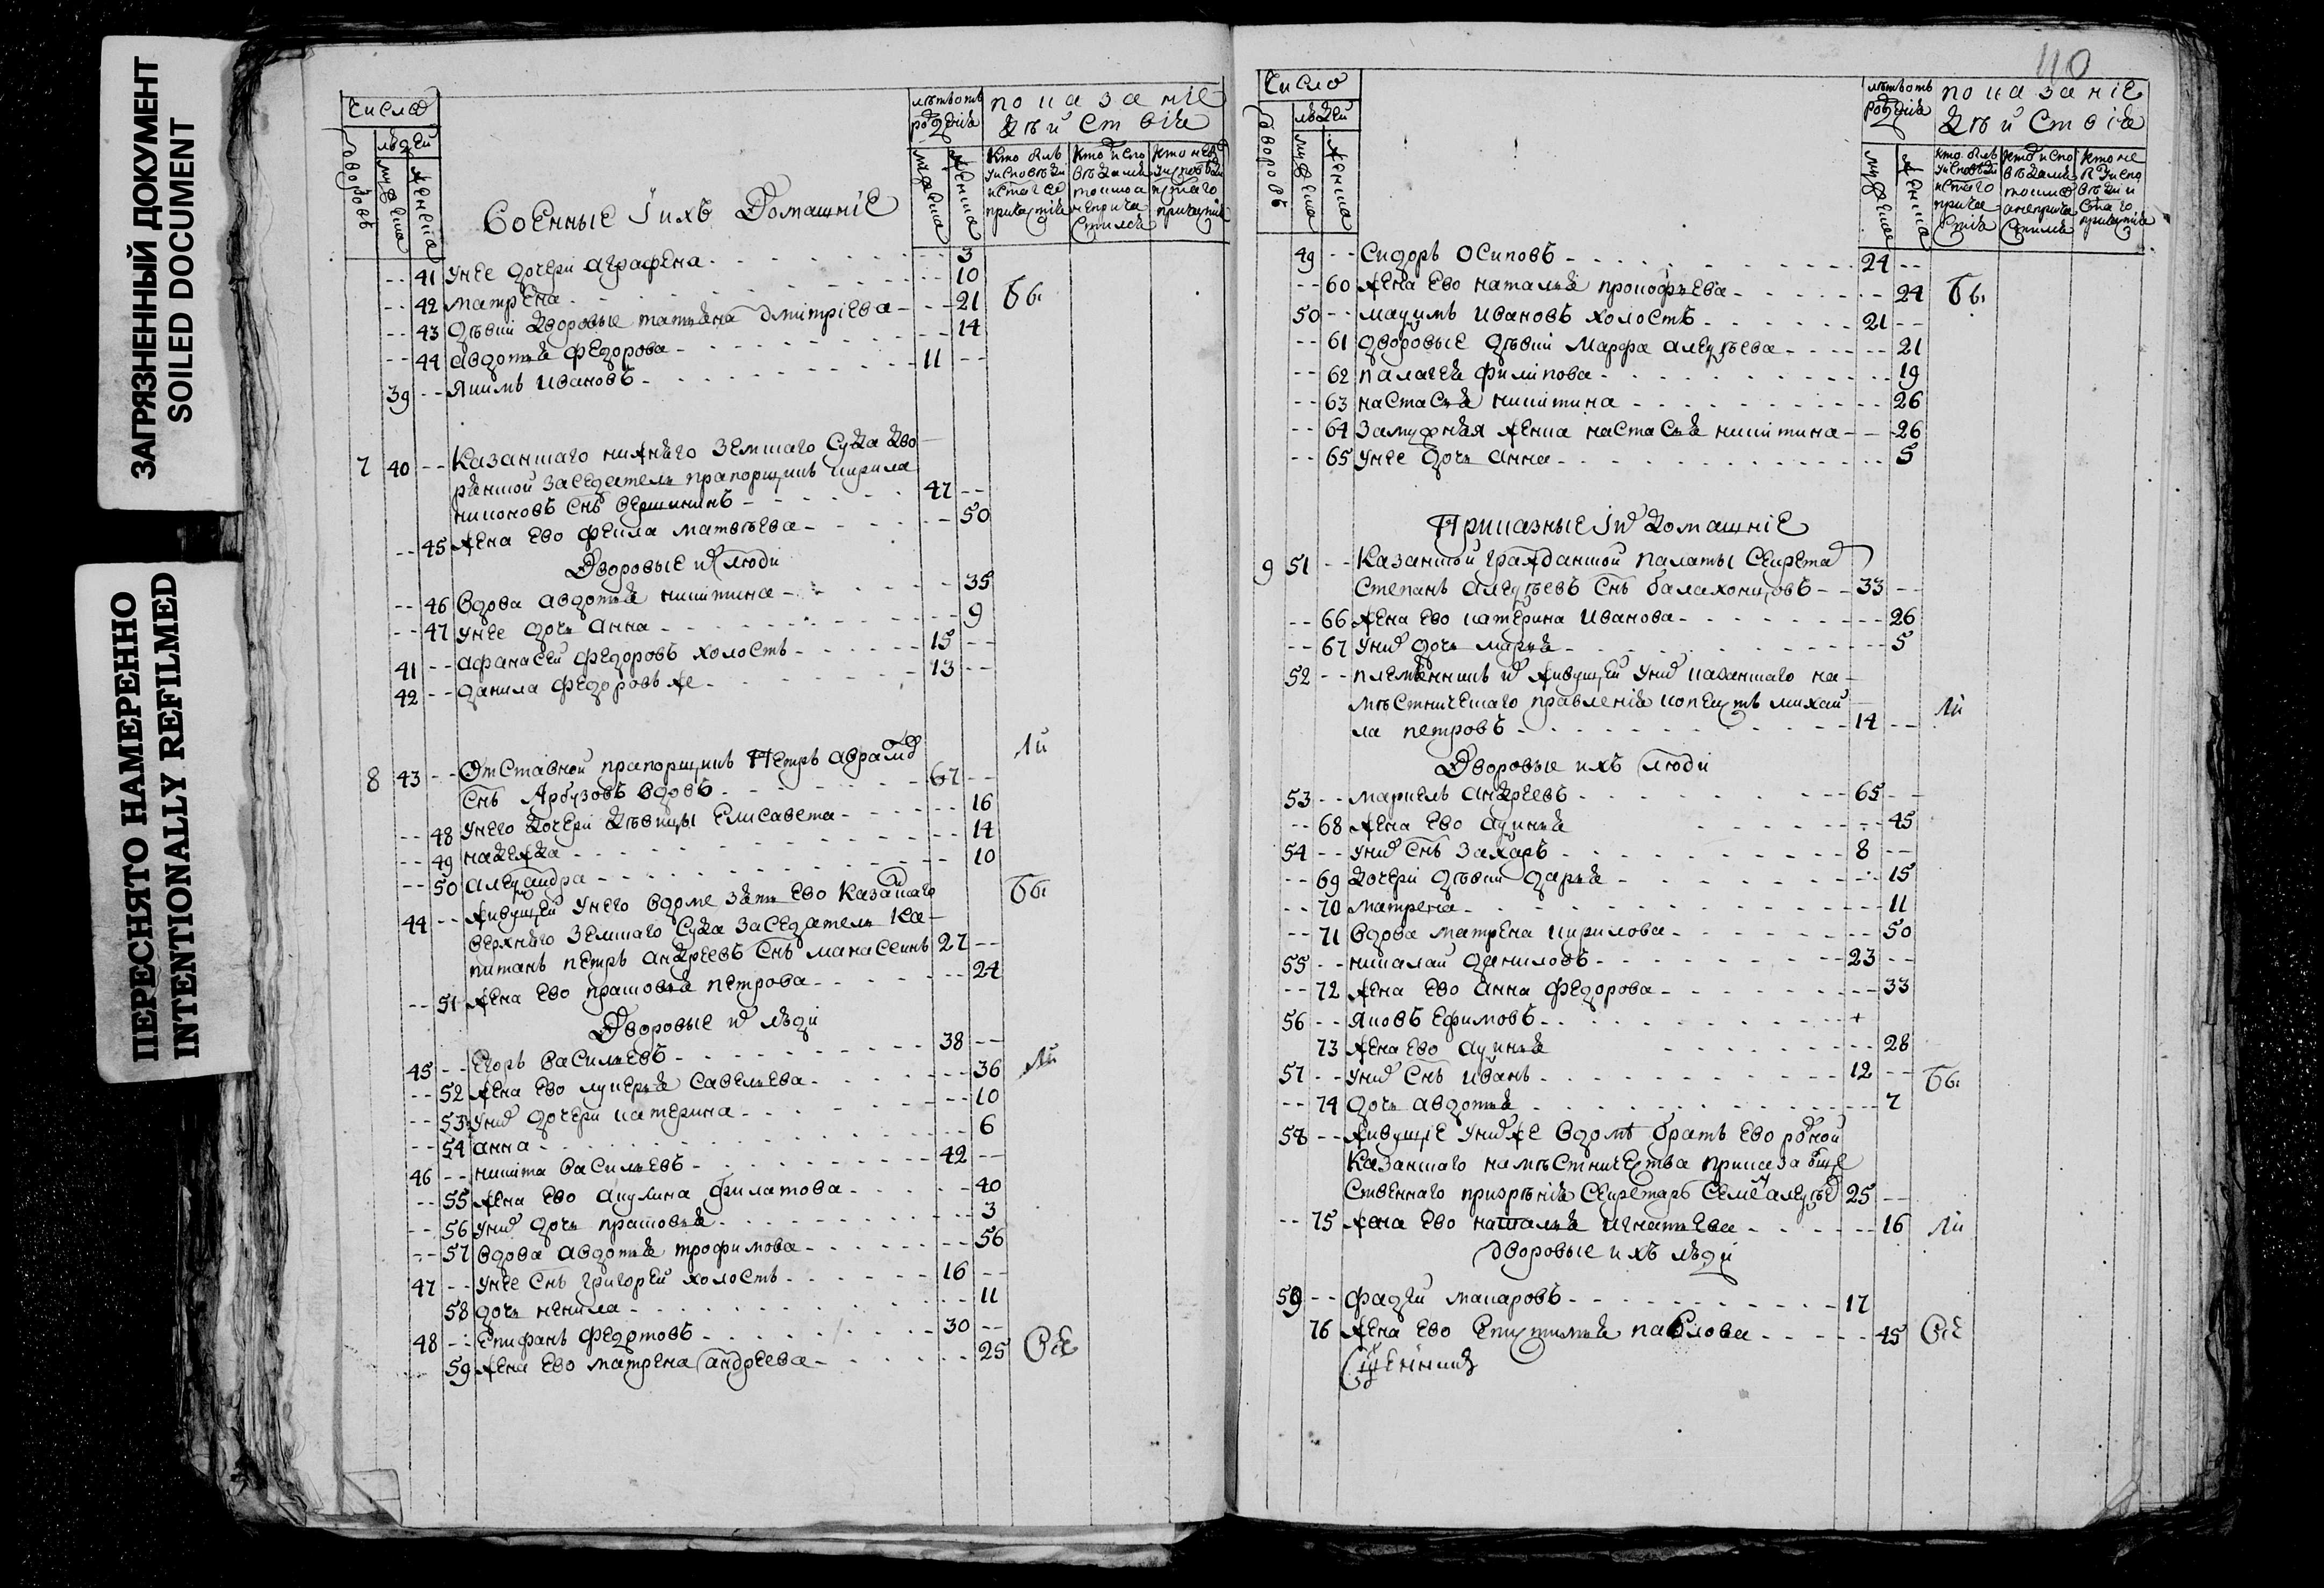 ЗАГРЯЗНЕННЫЙ ДОКУМЕНТ
SOILED DOCUMENT
ПЕРЕСНЯТО НАМЕРЕННО
INTENTIONALLY REFILMED
Число
людей
дворовъ
мужеска
женска
Военные и ихъ Домашніе
лѣтъ отъ рожденія
мужеска
женска
показаніе
дѣйствія
-- 41 у нее дочери аграфена -- 3
-- 42 матрена -- 10
-- 43 дѣвки дворовые татьяна дмитріева -- 21 бы
-- 44 авдотья федорова -- 14
39 -- якимъ ивановъ 11 --
7 40 -- Казанскаго нижняго земскаго суда дво
рянской заседатель прапорщикъ кирила
никоновъ снъ вершининъ 47 --
-- 45 жена ево фекла матвѣева -- 50
Дворовые их люди
-- 46 вдова авдотья никитина -- 35
-- 47 у нее дочь анна -- 9
41 -- афанасей федоровъ холостъ 15 --
42 -- данила федоровъ же 13 --
ли
8 43 -- Отставной прапорщикъ Петръ аврамо
снъ Арбузовъ вдовъ 67 --
-- 48 у него дочери дѣвицы елисавета -- 16
-- 49 надежда -- 14
-- 50 александра -- 10
44 -- живущей у него вдоме зять ево казанскаго бы
верхняго земскаго суда заседатель ка
питанъ петръ андреевъ снъ манасеинъ 27 --
-- 51 жена ево прасковья петрова -- 24
Дворовые их люди
45 -- Егоръ васильевъ 38 --
-- 52 жена ево лукерья савельева -- 36 ли
-- 53 у них дочери катерина -- 10
-- 54 анна -- 6
46 -- никита васильевъ 42 --
-- 55 жена ево акулина филатова -- 40
-- 56 у них дочь прасковья -- 3
-- 57 вдова авдотья трофимова -- 56
47 -- у нее снъ григорей холостъ 16 --
58 дочь ненила -- 11
48 -- Епифанъ федотовъ 30 --
59 жена ево матрена андреева -- 25 Всѣ
110
Число
людей
дворовъ
мужеска
женска
лѣтъ отъ рожденія
мужеска
женска
показаніе
дѣйствія
49 -- Сидоръ осиповъ 24 --
-- 60 жена ево наталья прокофьева -- 24 бы
50 -- максимъ ивановъ холостъ 21 --
-- 61 дворовые дѣвки марфа алексѣева -- 21
-- 62 палагея филипова -- 19
-- 63 настасья никитина -- 26
-- 64 замужняя женка настасья никитина -- 26
-- 65 у нее дочь анна -- 5
Приказные их домашніе
9 51 -- Казанской гражданской палаты секрета
степанъ алексѣевъ снъ балахонцовъ 33 --
-- 66 жена ево катерина иванова -- 26
-- 67 у них дочь марья -- 5
52 -- племянникъ их живущей у них казанскаго на
мѣстническаго правленія копеистъ михай ли
ла петровъ 14 --
Дворовые ихъ люди
53 -- маркелъ андреевъ 65 --
-- 68 жена ево аксинья -- 45
54 -- у них снъ захаръ 8 --
-- 69 дочери дѣвки дарья -- 15
-- 70 матрена -- 11
-- 71 вдова матрена кирилова -- 50
55 -- никалай даниловъ 23 --
-- 72 жена ево анна федорова -- 33
56 -- яковъ ефимовъ +
73 жена ево аксинья -- 28
57 -- у них снъ иванъ 12 -- бы
-- 74 дочь авдотья -- 7
58 -- живущіе у них же вдомѣ братъ ево родной
казанскаго намѣстничества приказа обще
ственнаго призрѣнія секретарь семен алексѣе 25 --
-- 75 жена ево наталья игнатьева -- 16 ли
дворовые ихъ люди
59 -- фадей макаровъ 17
76 жена ево епистимья павлова -- 45 Всѣ
Священникъ